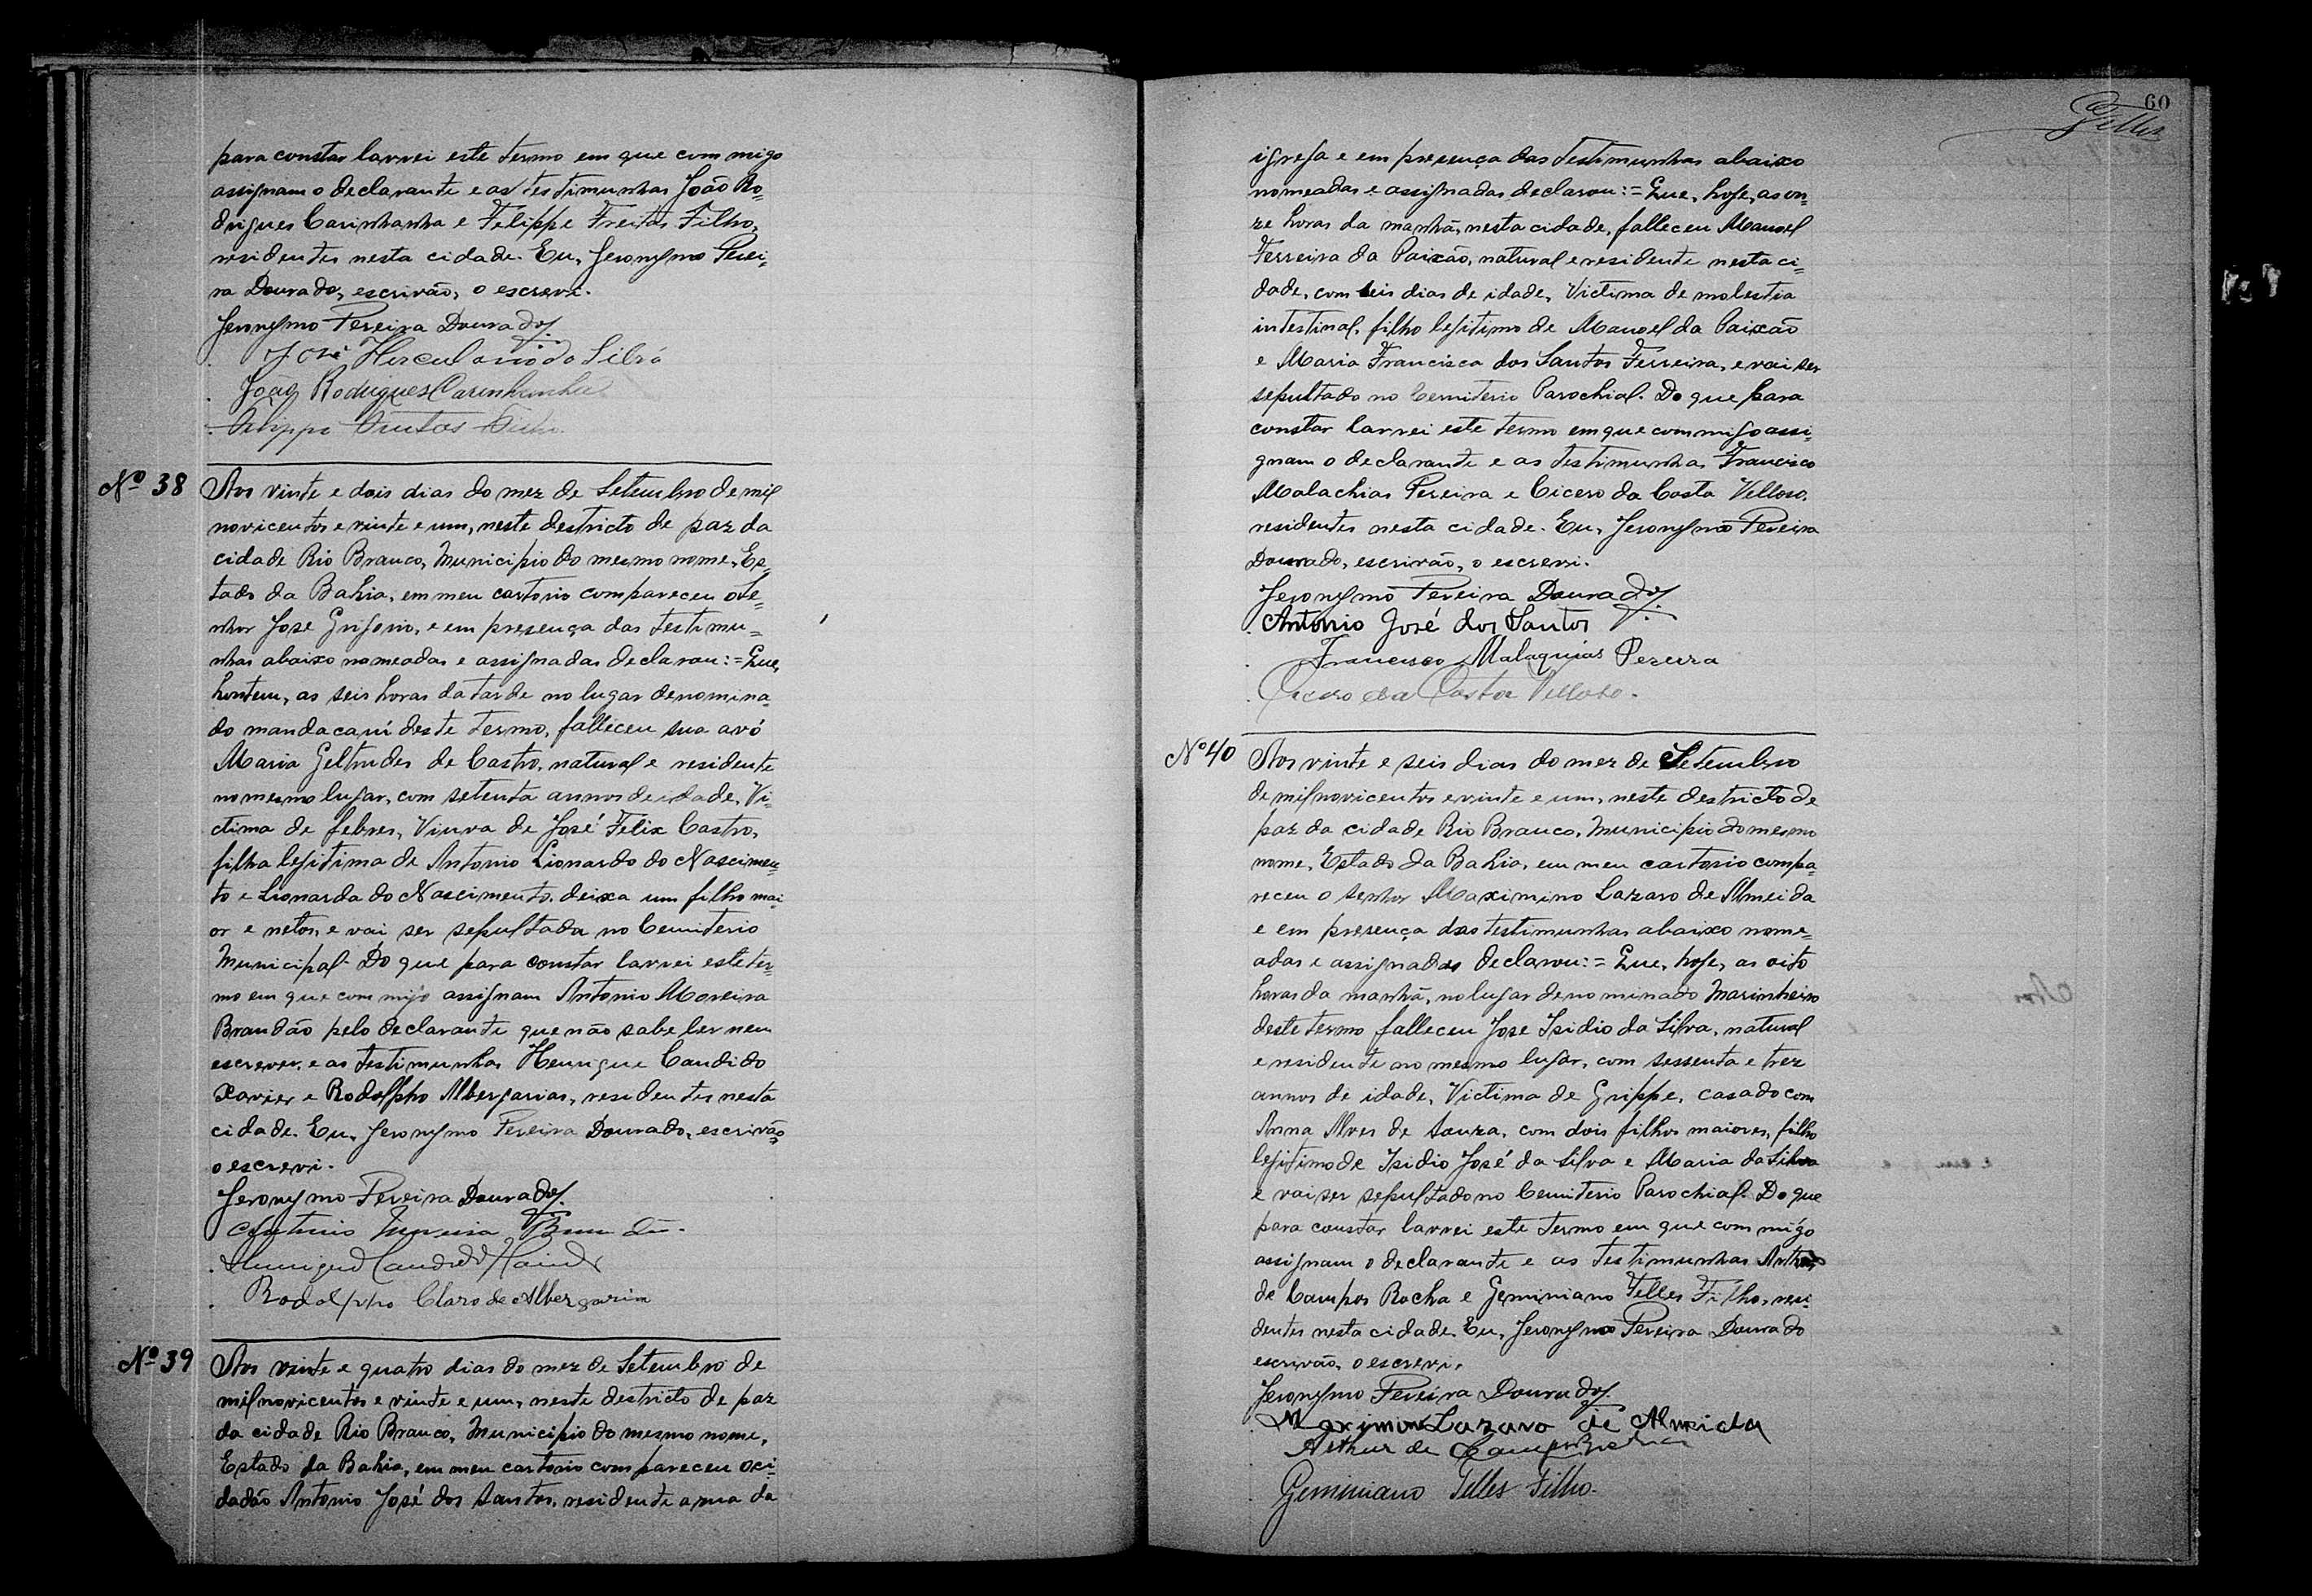 para constar lavrei este termo em que commigo
assignam o declarante e as testimunhas João Ro=
drigues Carinhanha e Felippe Freitas Filho,
residentes nesta cidade. Eu, Jeronymo Perei=
ra Dourado, escrivão, o escrevi.
Jeronymo Pereira Dourado
José Herculano da Silva
João Rodrigues Carinhanha
Felippe Freitas Filho
Nº 38 Aos vinte e dois dias do mez de Setembro de mil
novicentos e vinte e um, neste destricto de paz da
cidade Rio Branco, Municipio do mesmo nome, Es=
tado da Bahia, em meu cartorio compareceu o Se=
nhor José Grigorio, e em presença das testimu=
nhas abaixo nomeadas e assignadas declarou:= Que,
hontem, as seis horas da tarde no lugar denomina=
do mandacarú deste termo, falleceu sua avó
Maria Geltrudes de Castro, natural e residente
no mesmo lugar, com setenta annos de idade, Vi=
ctima de febres, Viuva de José Felix Castro,
filha legitima de Antonio Lionardo do Nascimen=
to e Lionarda do Nascimento, deixa um filho mai=
or e netos, e vai ser sepultada no Cemiterio
Municipal. Do que para constar lavrei este ter=
mo em que commigo assignam Antonio Moreira
Brandão pelo declarante que não sabe ler nem
escrever, e as testimunhas Henrique Candido
Xavier e Rodolpho Albergarias, residentes nesta
cidade. Eu, Jeronymo Pereira Dourado, escrivão,
o escrevi.
Jeronymo Pereira Dourado
Antonio Moreira Brandão
Henrique Candido Xavier
Rodolpho Claro de Albergaria
Nº 39 Aos vinte e quatro dias do mez de Setembro de
mil novicentos e vinte e um, neste destricto de paz
da cidade Rio Branco, Municipio do mesmo nome,
Estado da Bahia, em meu cartorio compareceu o ci=
dadão Antonio José dos Santos, residente a rua da
60
Telles
igreja e em presença das testimunhas abaixo
nomeadas e assignadas declarou:= Que, hoje, as on=
ze horas da manhã, nesta cidade, falleceu Manoel
Ferreira da Paixão, natural e residente nesta ci=
dade, com seis dias de idade, Victima de molestia
intestinal, filho legitimo de Manoel da Paixão
e Maria Francisca dos Santos Ferreira, e vai ser
sepultado no Cemiterio Parochial. Do que para
constar lavrei este termo em que commigo assi=
gnam o declarante e as testimunhas Francisco
Malachias Pereira e Cicero da Costa Velloso,
residentes nesta cidade. Eu, Jeronymo Pereira
Dourado, escrivão, o escrevi.
Jeronymo Pereira Dourado
Antonio José dos Santos
Francisco Malaquias Pereira
Cicero da Costa Velloso.
Nº 40 Aos vinte e seis dias do mez de Setembro
de mil novicentos e vinte e um, neste destricto de
paz da cidade Rio Branco, Municipio do mesmo
nome, Estado da Bahia, em meu cartorio compa=
receu o senhor Maximino Lazaro de Almeida
e em presença das testimunhas abaixo nome=
adas e assignadas declarou:= Que, hoje, as oito
horas da manhã, no lugar denominado Marinheiro
deste termo falleceu Jose Isidio da Silva, natural
e residente no mesmo lugar, com sessenta e trez
annos de idade, Victima de Grippe, casado com
Anna Alves de Souza, com dois filhos maiores, filho
legitimo de Isidio José da Silva e Maria da Silva
e vai ser sepultado no Cemiterio Parochial. Do que
para constar lavrei este termo em que commigo
assignam o declarante e as testimunhas Arthur
de Campos Rocha e Geminiano Telles Filho, resi=
dentes nesta cidade. Eu, Jeronymo Pereira Dourado
escrivão, o escrevi.
Jeronymo Pereira Dourado
Maximino Lazaro de Almeida
Arthur de Campos Rocha
Geminiano Telles Filho.